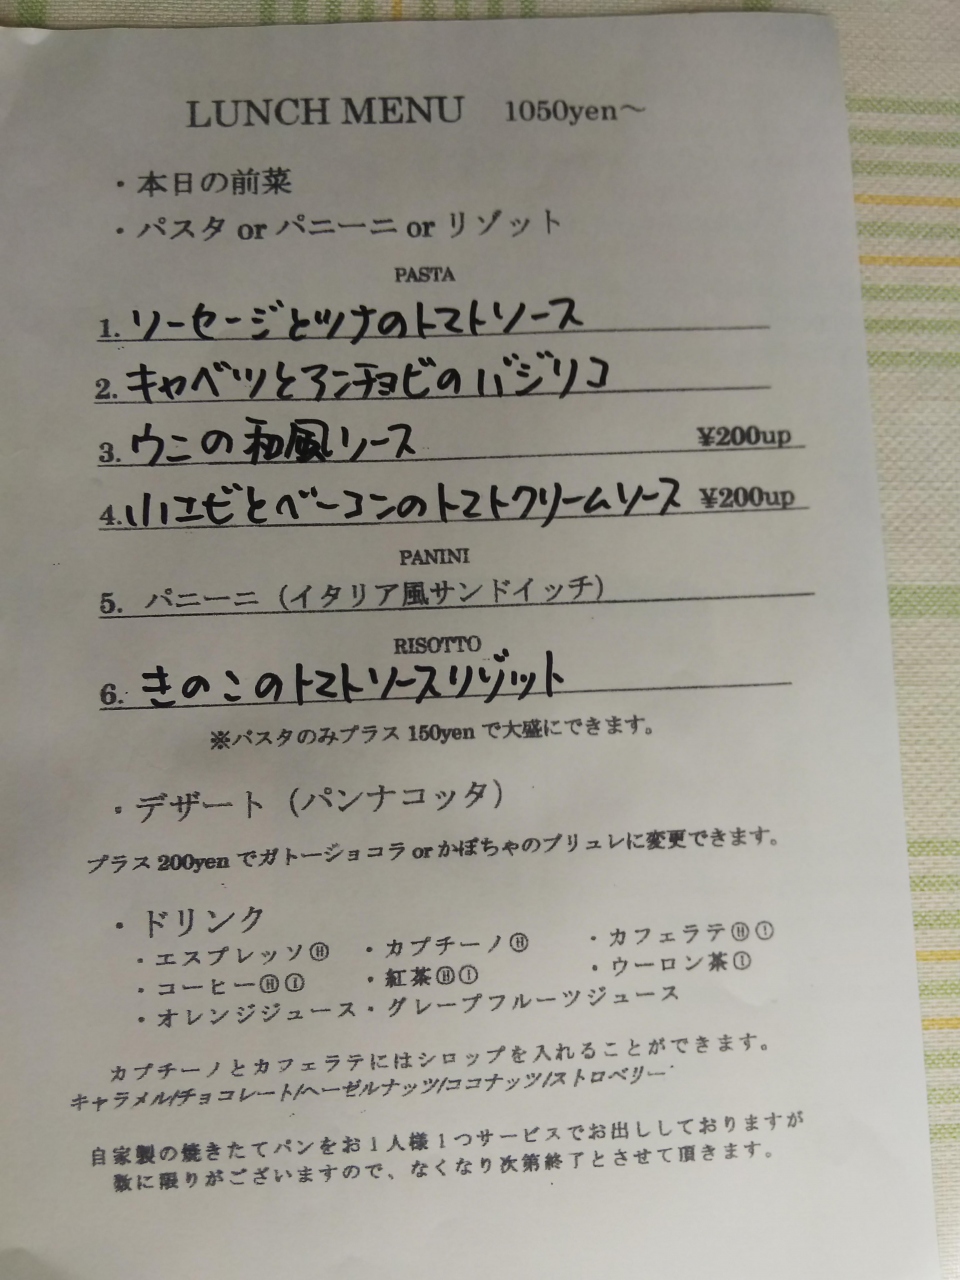 LUNCH MENU 1050yen～
・本日の前菜
・パスタ or パニーニ or リゾット
PASTA
1. ソーセージとツナのトマトソース
2. キャベツとアンチョビのバジリコ
3. ウニの和風ソース ¥200up
4. 小エビとベーコンのトマトクリームソース ¥200up
PANINI
5. パニーニ（イタリア風サンドイッチ）
RISOTTO
6. きのこのトマトソースリゾット
※パスタのみプラス 150yen で大盛にできます。
・デザート（パンナコッタ）
プラス 200yen でガトーショコラ or かぼちゃのブリュレに変更できます。
・ドリンク
・エスプレッソⒽ ・カプチーノⒽ ・カフェラテⒽⒾ
・コーヒーⒽⒾ ・紅茶ⒽⒾ ・ウーロン茶Ⓘ
・オレンジジュース・グレープフルーツジュース
カプチーノとカフェラテにはシロップを入れることができます。
キャラメル/チョコレート/ヘーゼルナッツ/ココナッツ/ストロベリー
自家製の焼きたてパンをお１人様１つサービスでお出ししておりますが
数に限りがございますので、なくなり次第終了とさせて頂きます。